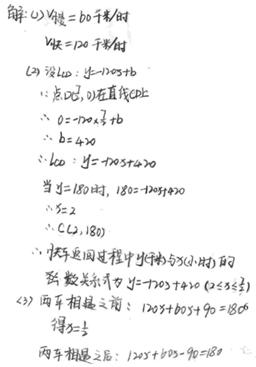 解:(1) V慢=60千米/时
V快=120千米/时
(2) 设LCD: y=-120x+b
∵点D(7/2,0)在直线CD上
∴ 0=-120×7/2+b
∴ b=420
∴ LCD: y=-120x+420
当y=180时, 180=-120x+420
∴ x=2
∴ C(2,180)
∴ 快车返回过程中y(千米)与x(小时)的
函数关系式为y=-120x+420 (2≤x≤7/2)
(3) 两车相遇之前: 120x+60x+90=180
得x=1/2
两车相遇之后: 120x+60x-90=180